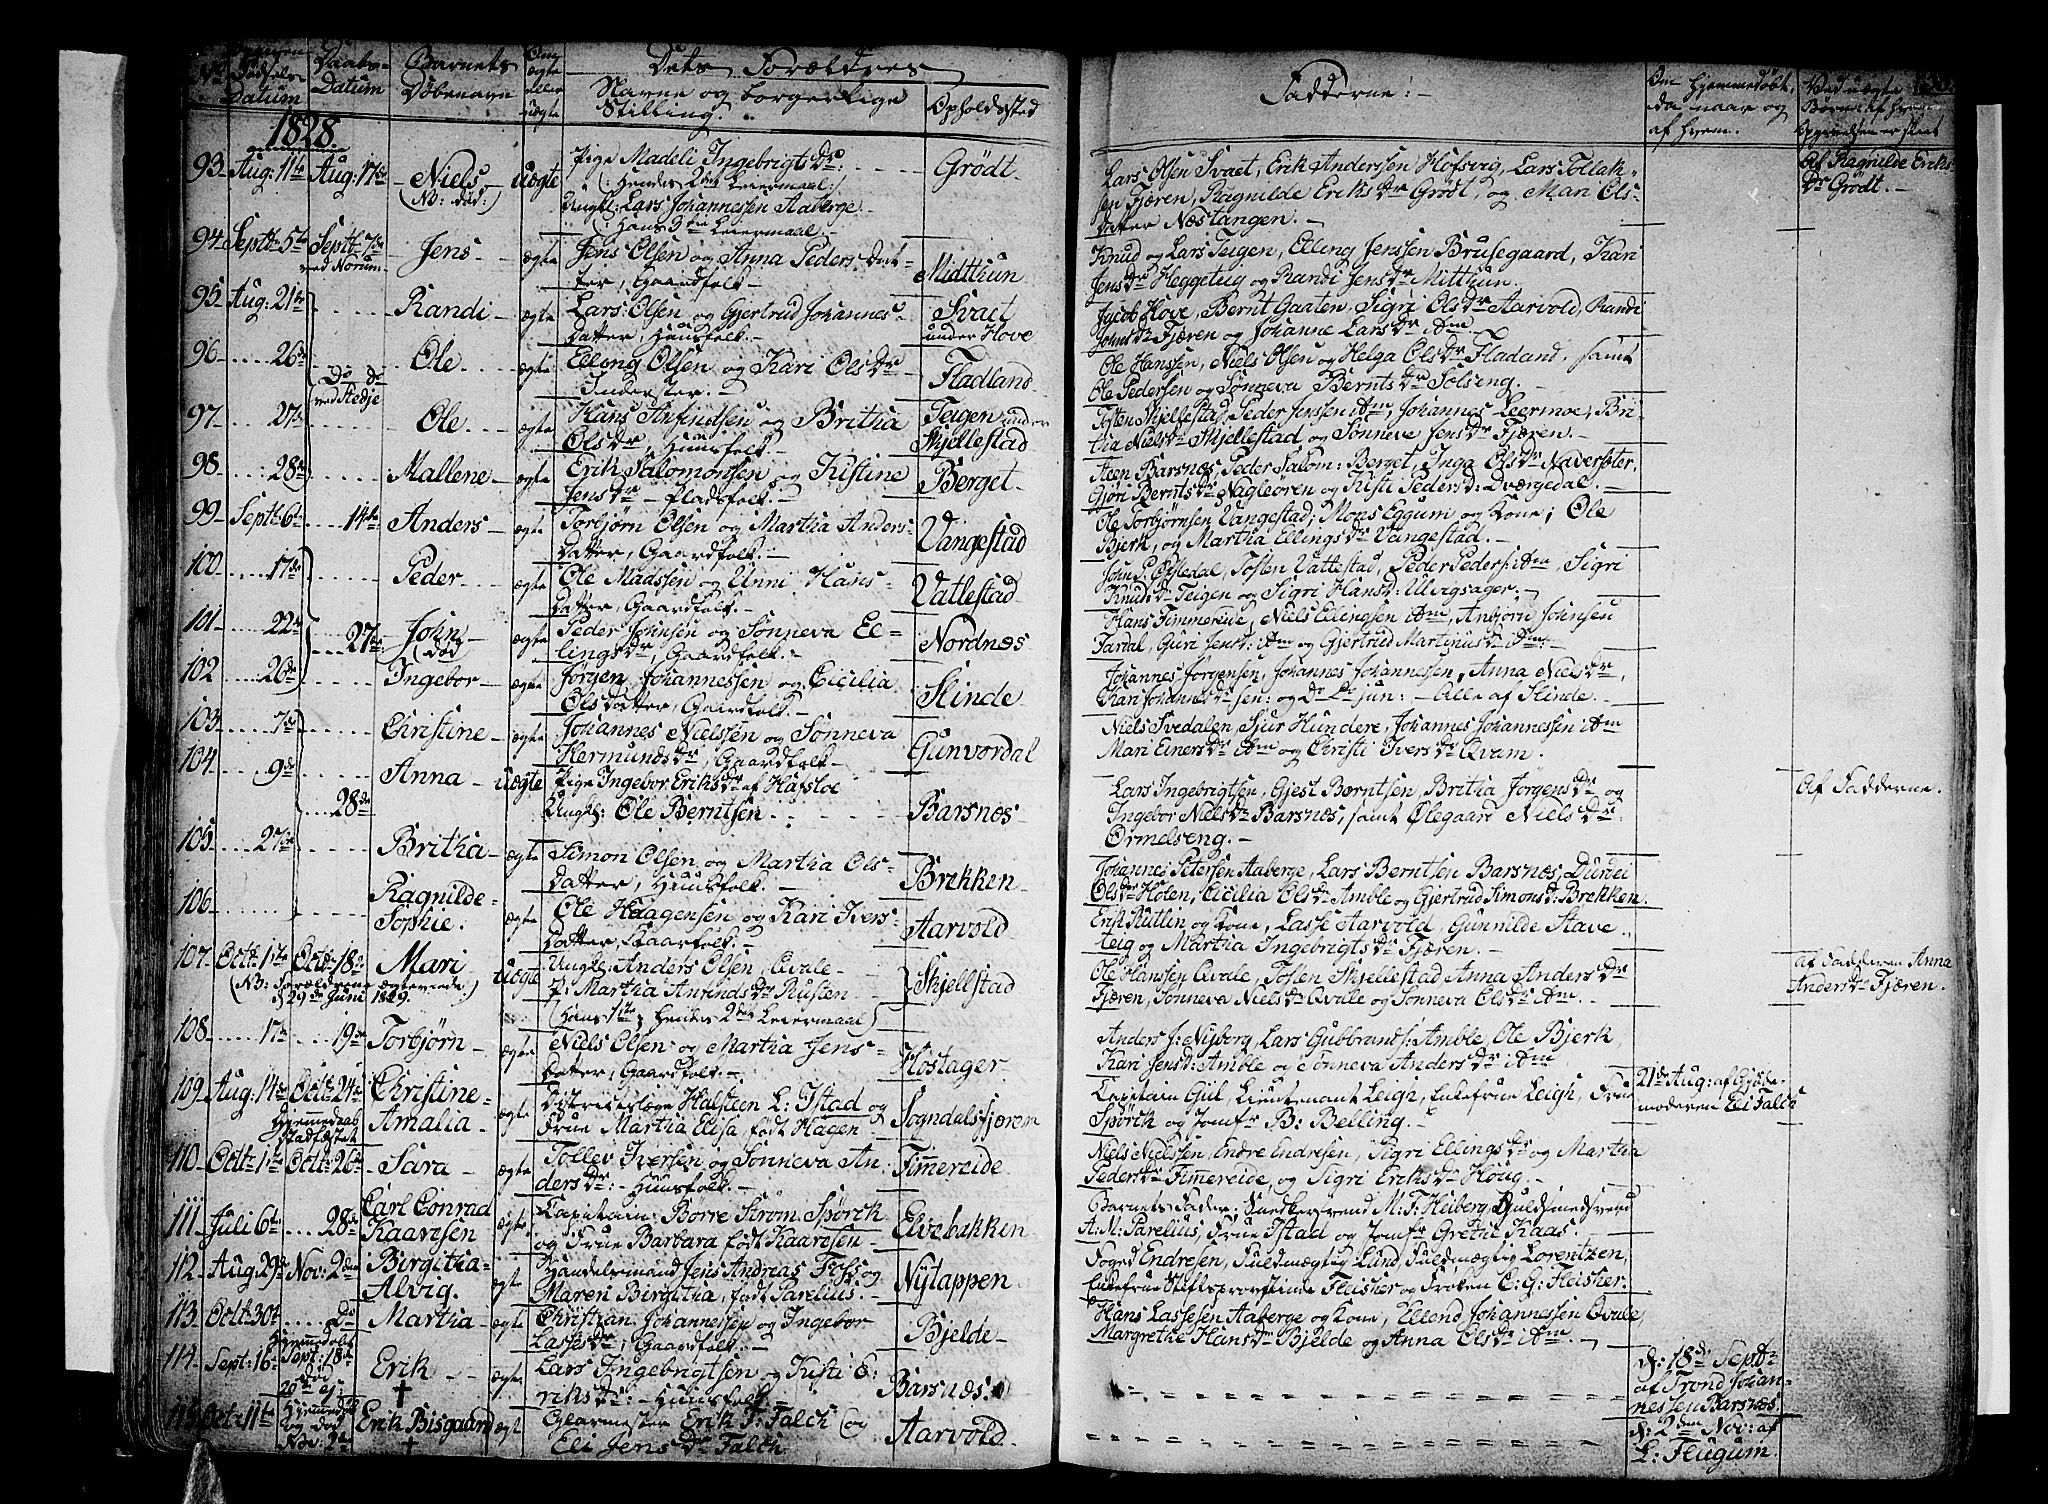 No. Fødsels Datum
Daabs-Datum
Barnets Døbenavn
Om ægte eller uægte
Dets Forældres
Navne og borgerlige Stilling.
Opholdssted
Fadderne:
Om hjemmedøbt, da naar og af hvem.
Ved uægte Børn: Af hvem Opgivelsen er skeet
1828.
93 Aug: 11te Aug: 17de Niels, uægte Pige Madeli Ingebrigtsdr. Grödt
(NB: död:) (: Hendes 2det Leiermaal:)
Ungkl: Lars Johannessen Aaberge
(: Hans 3die Leiermaal:)
Lars Olsen Svaet, Erik Anderssen Hofsvig, Lars Tollak-
sen Fjæren, Ragnilde Eriksdr Grödt, og Mari Ols-
datter Næstangen.
Af Ragnilde Eriks-
dr Grödt.
94 Septbr 5te Septbr 7de Jens ægte Jens Olsen og Anna Peders Dat-
ved Norum ter, Gaardfolk. Midtthun
Knud og Lars Teigen, Elling Jenssen Brusegaard, Kari
Jensdr Heggeteig og Randi Jensdr Mitthun.
95 Aug: 21de Randi ægte Lars Olsen og Gjertrud Johannes-
datter, Huusfolk. Svaet under Hove
Jacob Hove, Bernt Gaaten, Sigri Olsdr Aarvold, Randi
Johnsdr Fjæren og Johanne Larsdr ibm.
96 26de Ole ægte Elling Olsen og Kari Olsdr
Do do ved Stedje Inderster. Fladland
Ole Hanssen, Niels Olsen og Helga Olsdr Fladland, samt
Ole Pedersen og Sönneva Berntsdr Solseng.
97 27de Ole ægte Hans Anfindsen og Britha
Olsdr Huusfolk. Teigen under Skjellestad
Tosten Skjellestad, Peder Jenssen ibm, Johannes Leermoe, Bri-
tha Nielsdr Skjellestad og Sönneve Jensdr Fjæren.
98 28de Mallene ægte Erik Salomonsen og Kistine
Jensdr Pladsfolk. Berget
Steen Barsnæs, Peder Salom: Berget, Inga Olsdr Naversæter,
Gjöri Berntsdr Nagleören og Kisti Pedersd: Dværgedal.
99 Septbr 6te 14de Anders ægte Torbjørn Olsen og Martha Anders-
datter, Gaardfolk. Vangestad
Ole Torbjørnsen Vangestad, Mons Eggum og Kone, Ole
Bjerk, og Martha Ellingsdr Vangestad.
100 17de Peder ægte Ole Madssen og Unni Hans-
datter, Gaardfolk. Vatlestad
John P: Ostedal, Tosten Vattestad, Peder Peders: ibm, Sigri
Knudsdr Teigen og Sigri Hansd: Ulvigsager.
101 22de 27de John ægte Peder Johnsen og Sönneva El-
död lingsdr, Gaardfolk. Nordnæs
Hans Fimmereide, Niels Ellingsen ibm, Anbjörn Johnsen
Fardal, Guri Jensd: ibm og Gjertrud Martinusdr ibm.
102 26de Ingebor ægte Jörgen Johannessen og Cicilia
Olsdatter, Gaardfolk. Slinde
Johannes Jörgensen, Johannes Johannessen, Anna Nielsdr,
Kari Johannesdr sen: og do do jun: Alle af Slinde.
103 7de Christine ægte Johannes Nielssen og Sönneva
Hermundsdr, Gaardfolk. Gunvordal
Niels Svedalen, Sjur Hundere, Johannes Johannessen ibm
Mari Einersdr ibm og Christi Iversdr Qvam.
104 9de 28de Anna uægte Pige Ingebor Eriksdr af Hafsloe
Ungkl: Ole Berntsen Barsnæs
Lars Ingebrigtsen, Gjest Berntsen, Britha Jörgensdr og
Ingebor Nielsdr Barsnæs, samt Olegaard Nielsdr
Ormelseng.
Af Fadderne.
105 27de Britha ægte Simon Olsen og Martha Ols-
datter, Huusfolk. Brekken
Johannes Petersen Aaberge, Lars Berntsen Barsnæs, Durdei
Olsdr Holen, Cicilia Olsdr Amble og Gjertrud Simonsd: Brekken.
106 Ragnilde Sophie. ægte Ole Haagensen og Kari Ivers-
datter, Kaarfolk. Aarvold
Erik Kutlin og Kone, Lasse Aarvold, Gunnilde Stave-
teig og Martha Ingebrigtsdr Fjæren.
107 Octbr 1ste Octbr 18de Mari uægte Ungkl: Anders Olsen, Qvale
(NB: Forældrene ægteviede P: Martha Anfindsdr Rusten Skjellstad
d 29de Juni 1829. (Hans 1ste, Hendes 2det Leiermaal)
Ole Hanssen Qvale, Tosten Skjellestad, Anna Andersdr
Fjæren, Sönneva Nielsdr Qvale og Sönneva Olsdr ibm.
Af Fadderen Anna
Andersdr Fjæren.
108 17de 19de Torbjørn ægte Niels Olsen og Martha Jens-
datter, Gaardfolk. Kostager
Anders J: Nyborg, Lars Gubbrands: Amble, Ole Bjerk,
Kari Jensd: Amble og Sönneva Andersdr ibm
109 Aug: 14de Octbr 24de Christine Amalia ægte Districtslæge Halsteen L: Istad og
Hjemmedaab stadfæstet Frue Martha Elisa født Hagen Sogndalsfjæren
Capitain Gül, Lieutenant Leigh, Enkefrue Leigh, Frue
Spörck og Jomfr B: Belling.
21de Aug: af Gjorde-
moderen Eli Falch
110 Octbr 1ste Octbr 26de Sara ægte Tollev Iversen og Sönneva An-
dersdr: Huusfolk. Fimmereide
Niels Nielssen, Endre Endresen, Sigri Ellingsdr og Martha
Pedersdr Fimmereide, og Sigri Eriksdr Houg.
111 Juli 6te 28de Carl Conrad Kaarsen ægte Capitain: Borre Strøm Spörck
og Frue Barbara født Kaarsen Elvebakken
Barnets Fader: Snedkersvend M: F: Heiberg, Guldsmedsvend
A: N: Parelius, Frue Istad og Jomfr Grethe Kaas.
112 Aug: 29de Nov: 2den Birgitha Alvig. ægte Handelsmand Jens Andreas Foss og
Maren Birgitha, født Parelius. Nytappen
Foged Endresen, Fuldmægtig Lund, Fuldmægtig Lorentzen,
Enkefrue Stiftsprovstinde Fleischer og Frøken C: G: Fleischer.
113 Octbr 30te do Martha ægte Christian Johannessen og Ingebor
Lassesdr, Gaardfolk. Bjelde
Hans Lassesen Aaberge og Kone, Ellend Johannessen Qvale,
Margrethe Hansdr Bjelde og Anna Olsdr ibm
114 Sept: 16de Hjemmedøbt Sept: 18de död 20de ej: Erik † ægte Lars Ingebrigtsen og Kisti E-
riksdr: Huusfolk. Barsnæs:
d: 18de Septbr
af Trond Johan-
nessen Barsnæs.
115 Oct: 11te Hjemmedøbt og död Nov: 2de Erik Bisgaard † ægt Glarmester Erik J: Falch og
Eli Jensdr Falch Aarvold
d: 2den Nov: af
L: Flugum.